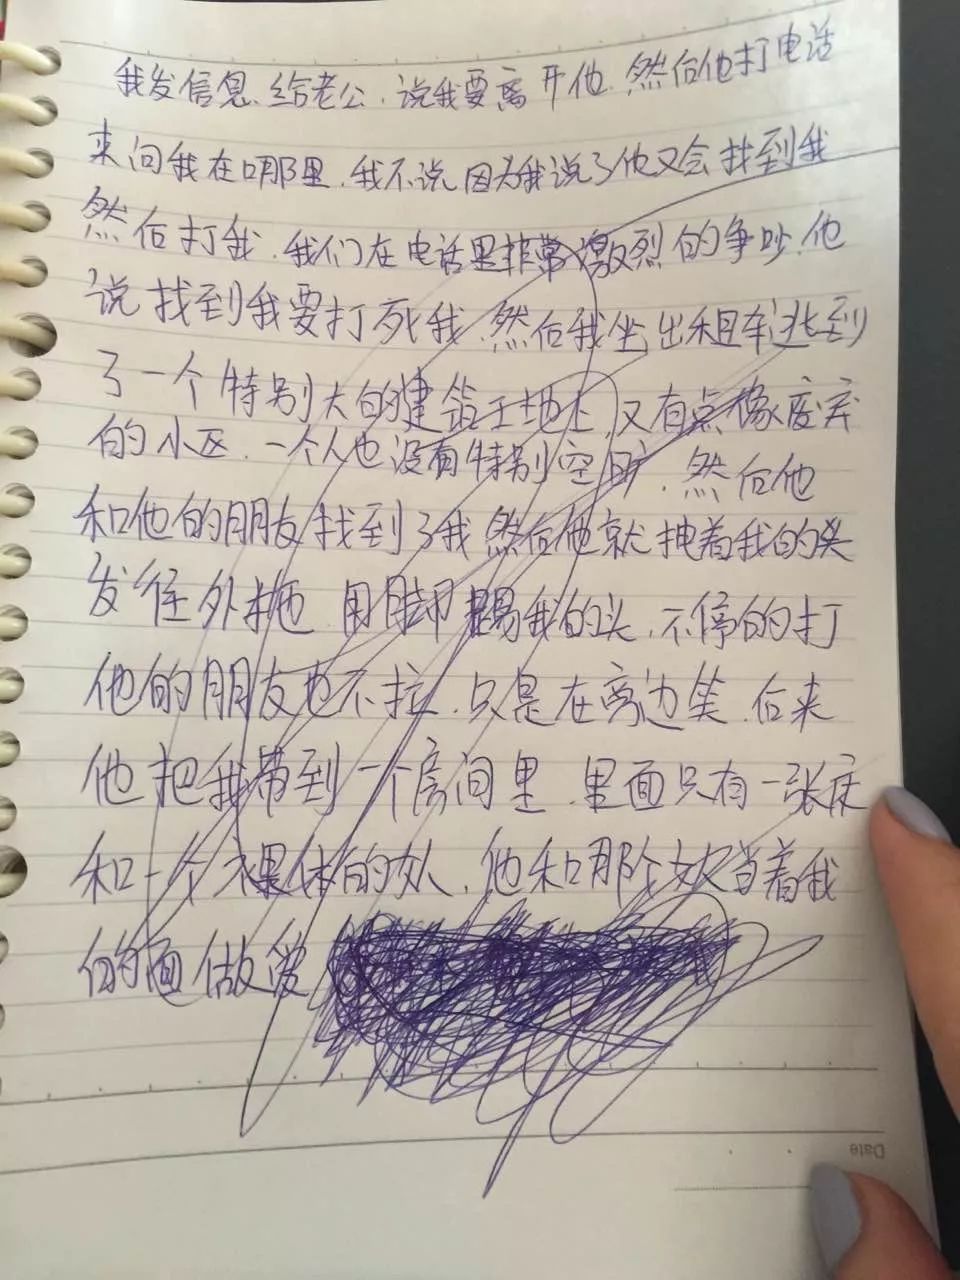 我发信息给老公,说我要离开他.然后他打电话
来问我在哪里.我不说因为我说了他又会找到我
然后打我.我们在电话里非常激烈的争吵.他
说找到我要打死我.然后我坐出租车逃到
了一个特别大的建筑工地上,又有点像废弃
的小区.一个人也没有特别空旷.然后他
和他的朋友找到了我然后他就拽着我的头
发往外拖.用脚踢我的头.不停的打
他的朋友也不拉.只是在旁边笑.后来
他把我带到一个房间里.里面只有一张床
和一个裸体的女人.他和那个女人当着我
的面做爱
Date